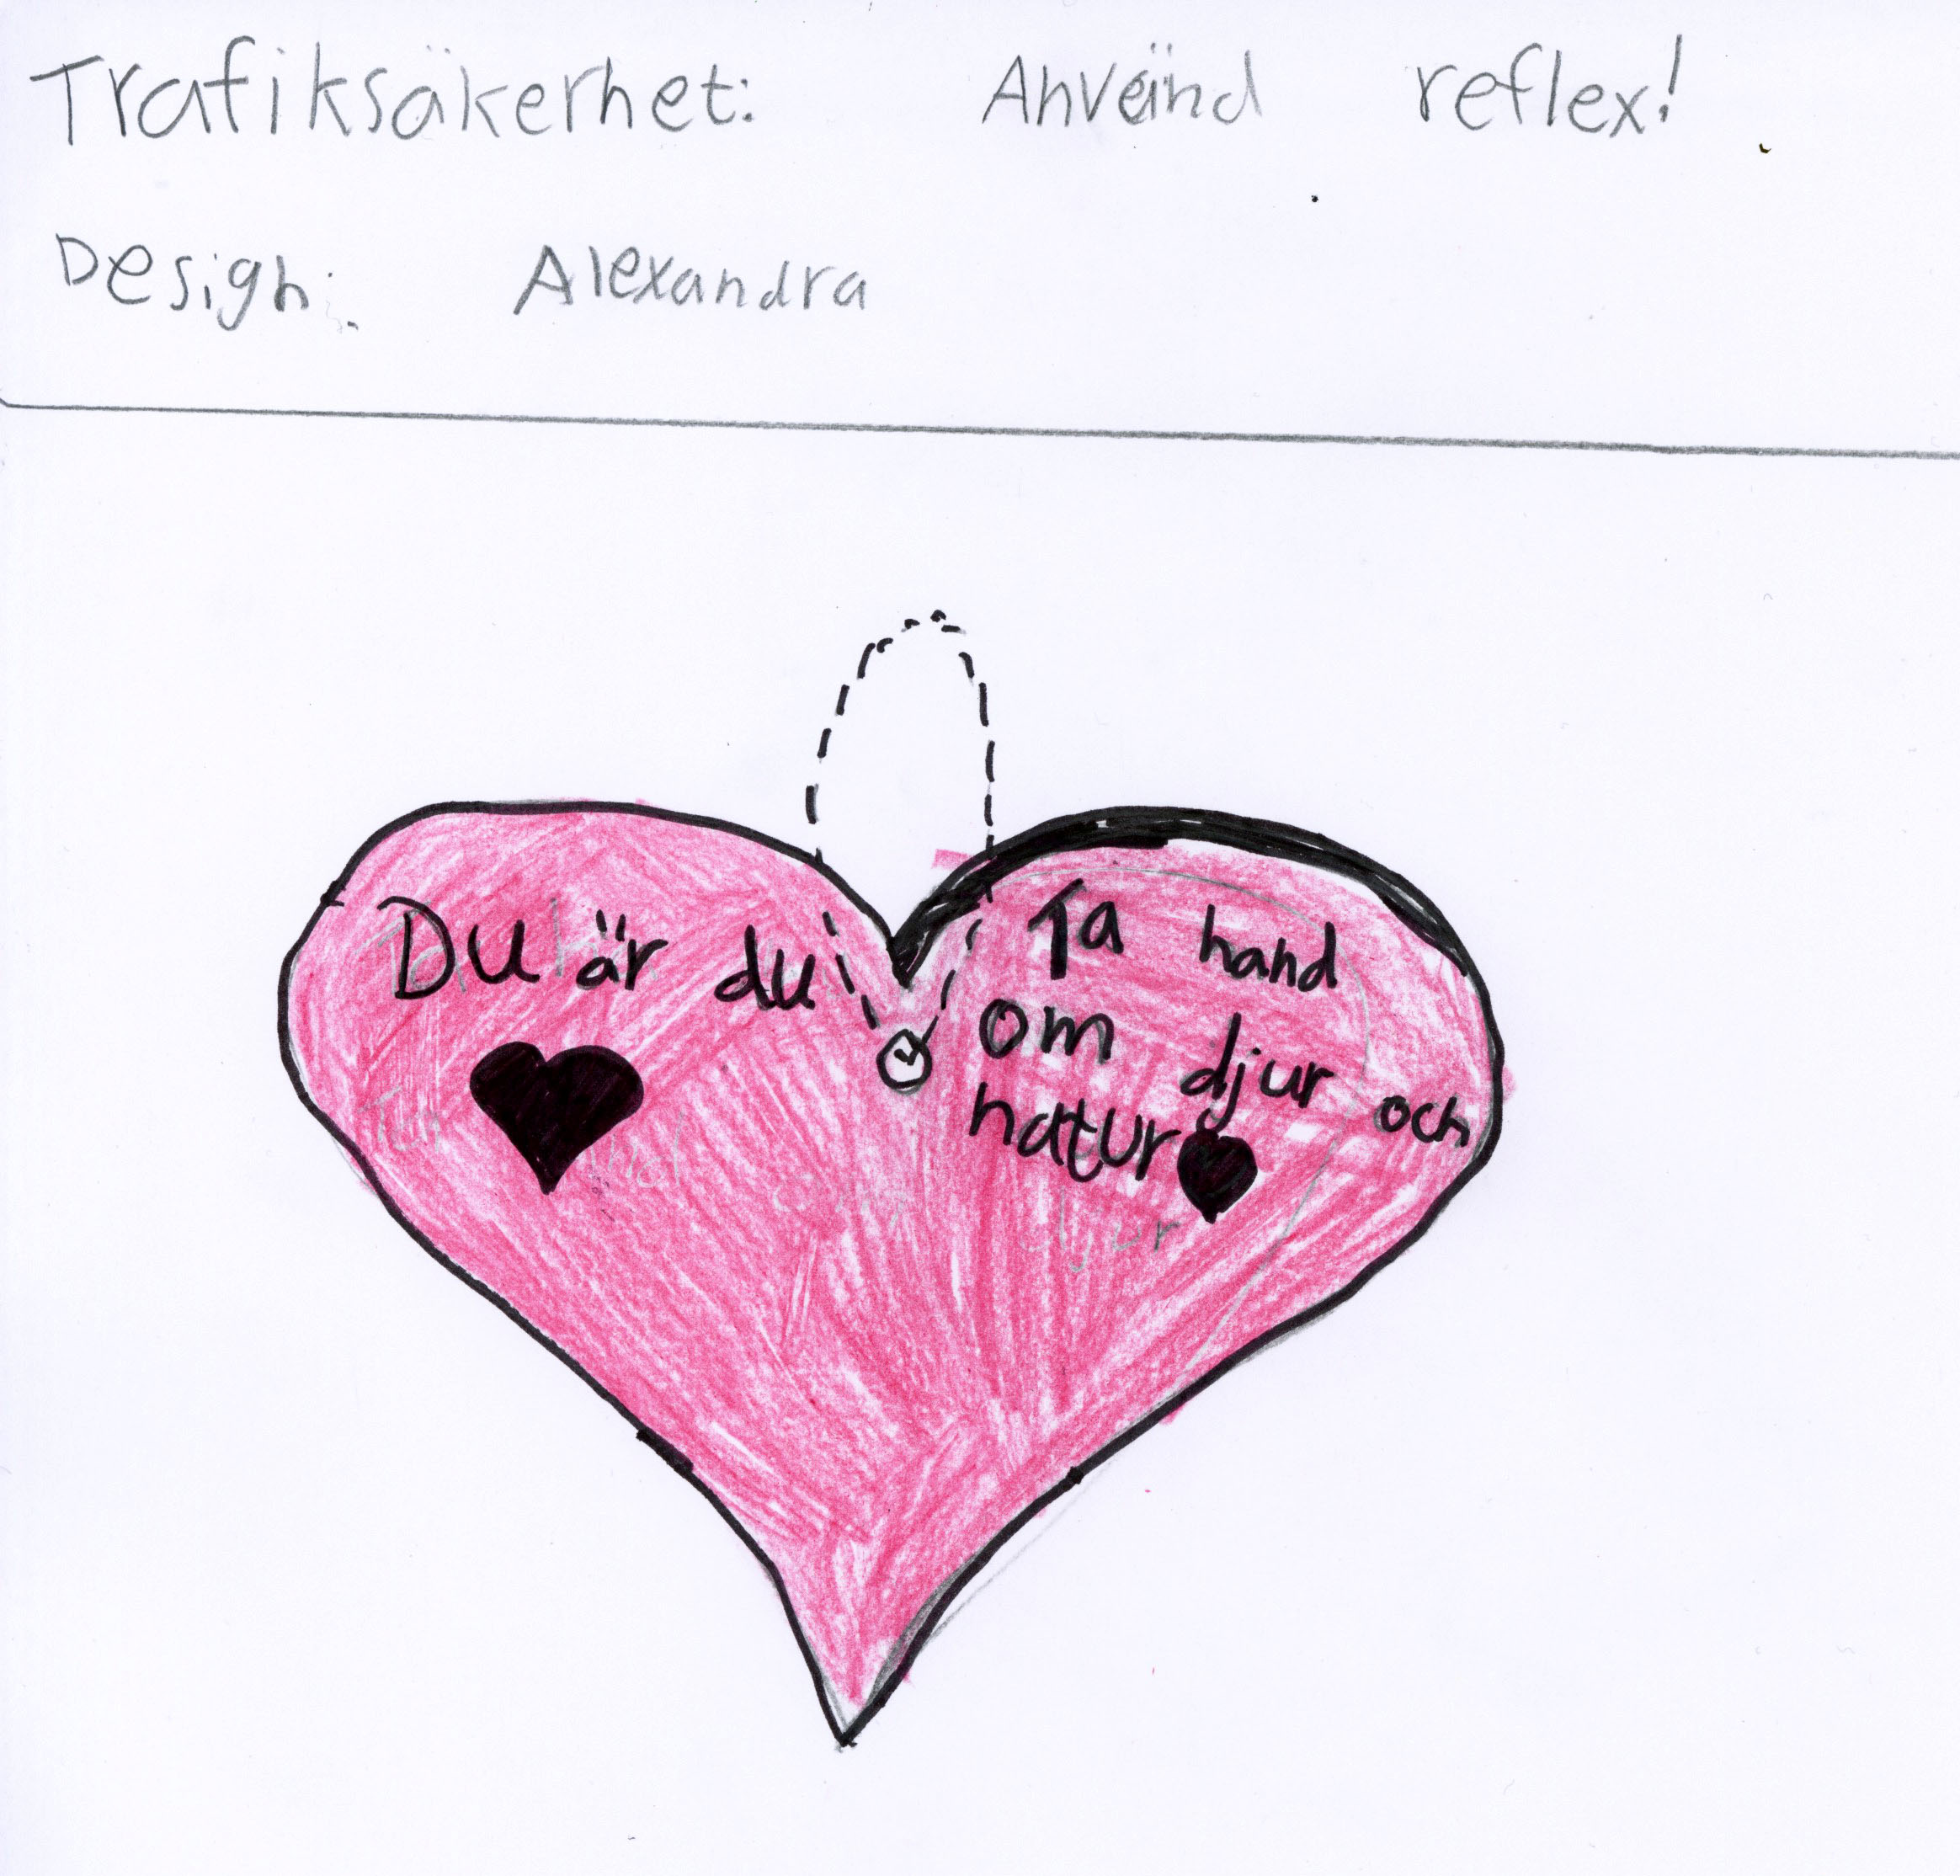 Trafiksäkerhet: Använd reflex!
Design: Alexandra
Du är du
Ta hand
om djur och
natur
djur